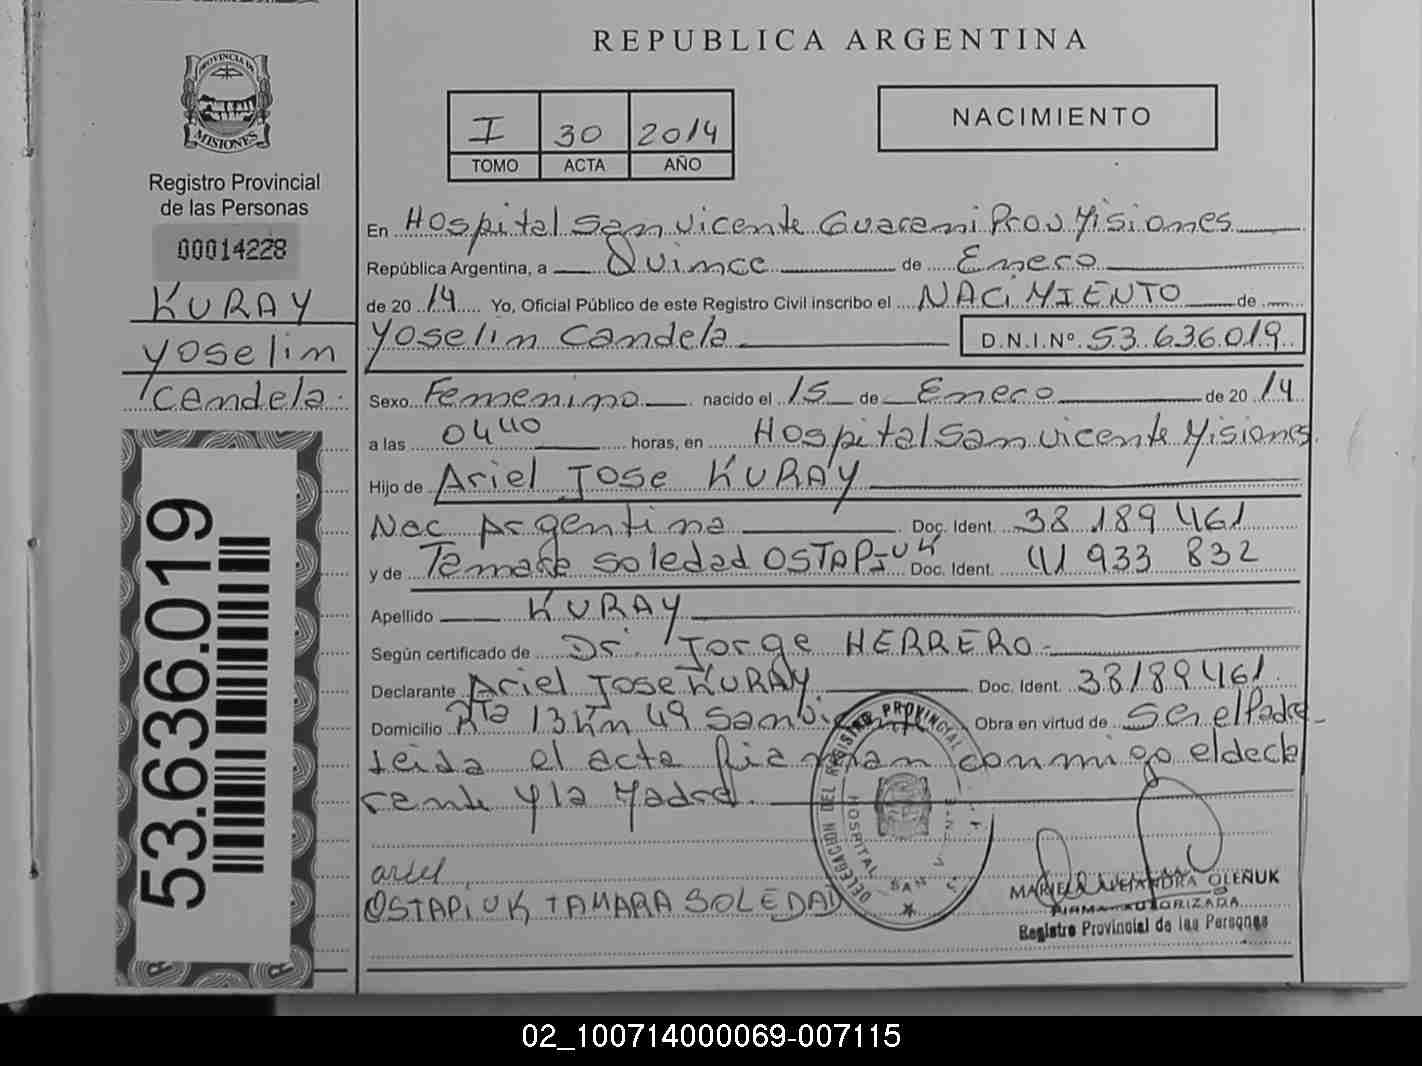 REPUBLICA ARGENTINA
PROVINCIA DE
MISIONES
Registro Provincial
de las Personas
00014228
KURAY
Yoselin
Candela.
53.636.019
I 30 2014
TOMO ACTA AÑO
NACIMIENTO
En Hospital San Vicente Guarani Prov Misiones
República Argentina, a Quince de Enero
de 2014 Yo, Oficial Público de este Registro Civil inscribo el NACIMIENTO de
Yoselin Candela D.N.I.Nº. 53.636.019
Sexo Femenino nacido el 15 de Enero de 2014
a las 0440 horas, en Hospital San Vicente Misiones
Hijo de Ariel Jose KURAY
Nac Argentina Doc. Ident. 38 189 461
y de Tamara Soledad OSTAPIUK Doc. Ident. 41 933 832
Apellido KURAY
Según certificado de Dr. Jorge HERRERO
Declarante Ariel Jose KURAY Doc. Ident. 38189461
Domicilio Rta 13 Km 49 San Vicente Obra en virtud de Ser el Padre
Leida el acta firman conmigo el decla
rante y la Madre.
ariel
OSTAPIUK TAMARA SOLEDAD
DELEGACION DEL REGISTRO PROVINCIAL
HOSPITAL SAN
MARIELA ALEJANDRA OLEÑUK
FIRMA AUTORIZADA
Registro Provincial de las Personas
02_100714000069-007115